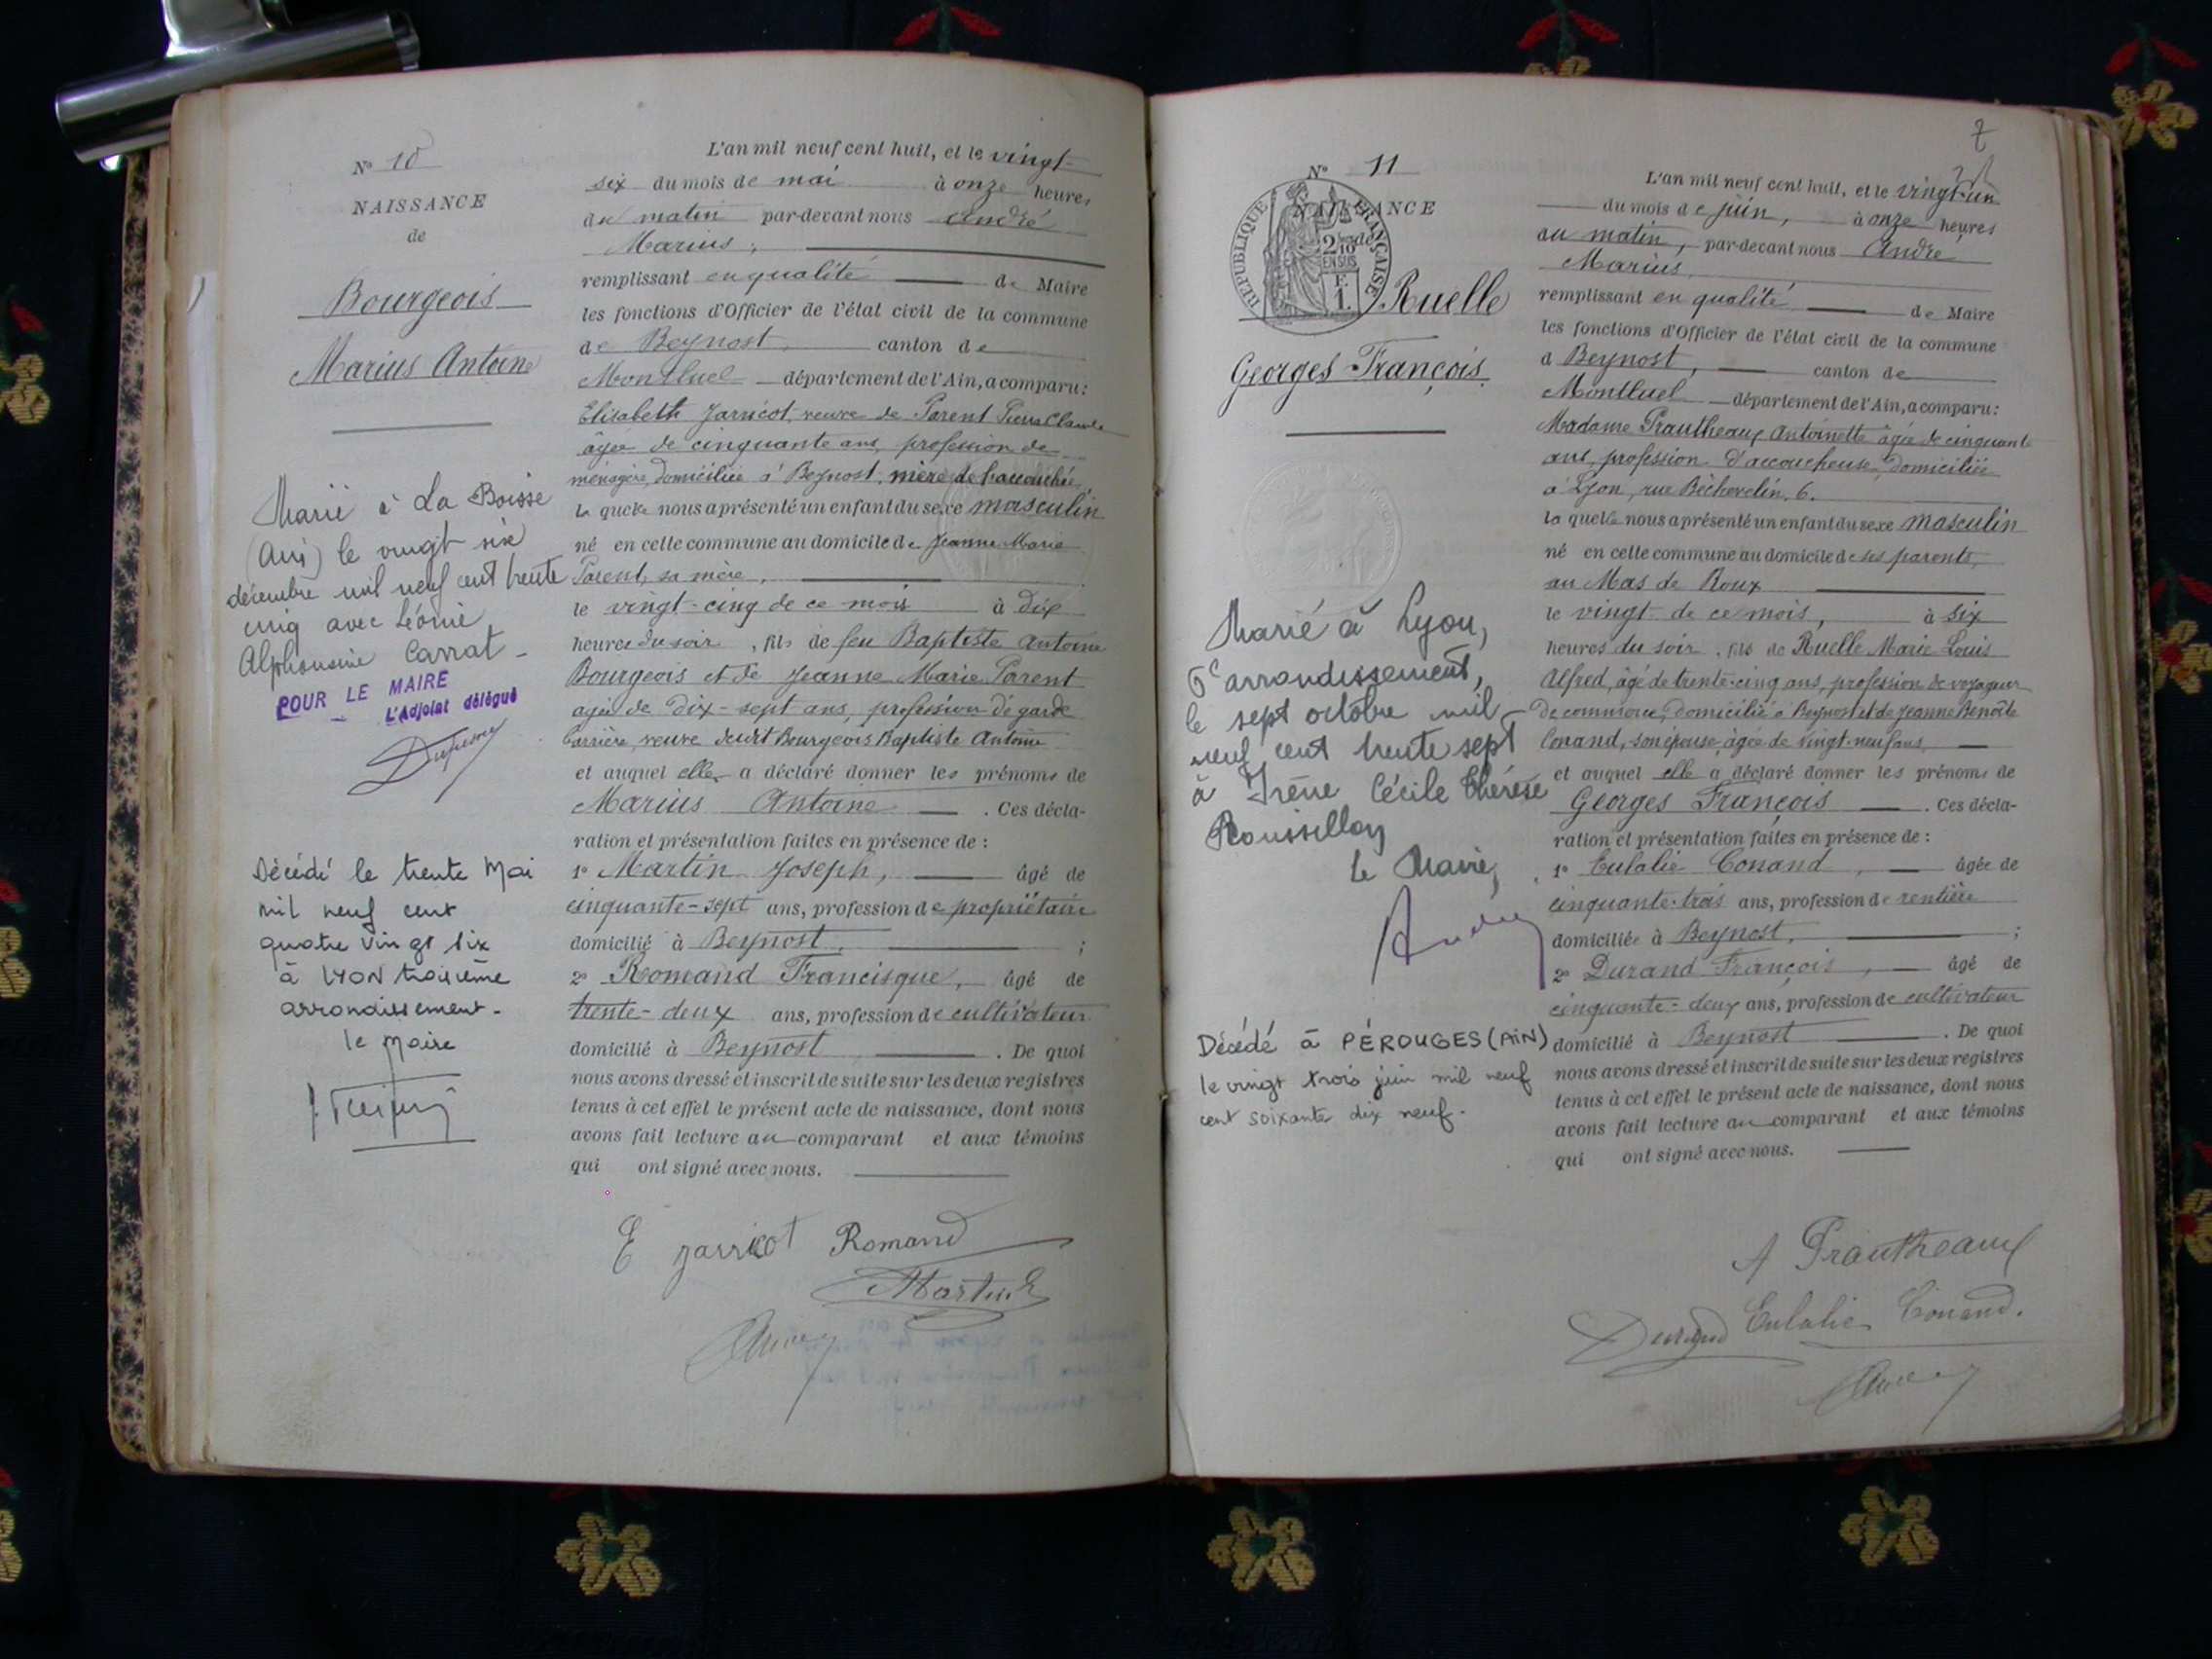 N° 10
NAISSANCE
de
Bourgeois
Marius Antoine
Marié à La Boisse
(Ain) le vingt six
décembre mil neuf cent trente
cinq avec Léonie
Alphonsine Carrat -
POUR LE MAIRE
L'Adjoint délégué
Décédé le trente Mai
mil neuf cent
quatre vingt six
à LYON troisième
arrondissement -
le Maire
L'an mil neuf cent huit, et le vingt-
six du mois de mai à onze heures
du matin par-devant nous André
Marius,
remplissant en qualité de Maire
les fonctions d'Officier de l'état civil de la commune
de Beynost, canton de
Montluel département de l'Ain, a comparu :
Elisabeth Jarricot, veuve de Parent Pierre Claude
âgée de cinquante ans, profession de
ménagère, domiciliée à Beynost, mère de l'accouchée,
la quelle nous a présenté un enfant du sexe masculin
né en cette commune au domicile de Jeanne Marie
Parent, sa mère,
le vingt-cinq de ce mois à dix
heures du soir, fils de feu Baptiste Antoine
Bourgeois et de Jeanne Marie Parent
agée de dix-sept ans, profession de garde
barrière, veuve dudit Bourgeois Baptiste Antoine
et auquel elle a déclaré donner les prénoms de
Marius Antoine . Ces décla-
ration et présentation faites en présence de :
1° Martin Joseph, âgé de
cinquante-sept ans, profession de propriétaire
domicilié à Beynost, ;
2° Romand Francisque, âgé de
trente-deux ans, profession de cultivateur
domicilié à Beynost . De quoi
nous avons dressé et inscrit de suite sur les deux registres
tenus à cet effet le présent acte de naissance, dont nous
avons fait lecture au comparant et aux témoins
qui ont signé avec nous.
E Jarricot Romand
Martin
André
N° 11
NAISSANCE
REPUBLIQUE FRANÇAISE
2/10 de
EN SUS
F.
1.
Ruelle
Georges François
Marié à Lyon,
6e arrondissement,
le sept octobre mil
neuf cent trente sept
à Irène Cécile Thérèse
Roussillon
Le Maire,
Décédé à PÉROUGES (AIN)
le vingt trois juin mil neuf
cent soixante dix neuf.
L'an mil neuf cent huit, et le vingt-un
du mois de juin, à onze heures
au matin, par-devant nous André
Marius,
remplissant en qualité de Maire
les fonctions d'Officier de l'état civil de la commune
d Beynost, canton de
Montluel département de l'Ain, a comparu :
Madame Prautheaux Antoinette âgée de cinquante
ans, profession d'accoucheuse, domiciliée
à Lyon, rue Béchevelin, 6.
la quelle nous a présenté un enfant du sexe masculin
né en cette commune au domicile de ses parents,
au Mas de Roux
le vingt de ce mois, à six
heures du soir, fils de Ruelle Marie Louis
Alfred, âgé de trente-cinq ans, profession de voyageur
de commerce, domicilié à Beynost et de Jeanne Benoîte
Conand, son épouse, âgée de vingt-neuf ans,
et auquel elle a déclaré donner les prénoms de
Georges François . Ces décla-
ration et présentation faites en présence de :
1° Eulalie Conand, âgée de
cinquante-trois ans, profession de rentière
domiciliée à Beynost, ;
2° Durand François, âgé de
cinquante-deux ans, profession de cultivateur
domicilié à Beynost . De quoi
nous avons dressé et inscrit de suite sur les deux registres
tenus à cet effet le présent acte de naissance, dont nous
avons fait lecture au comparant et aux témoins
qui ont signé avec nous.
A Prautheaux
Durand Eulalie Conand.
André